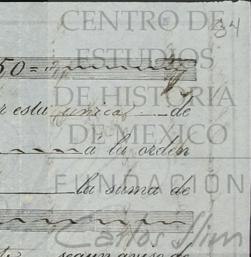 CENTRO DE
34
ESTUDIOS
50=
DE HISTORIA
esta unica de
DE MEXICO
a la orden
FUNDACIÓN
la suma de
Carlos Slim
segun aviso de